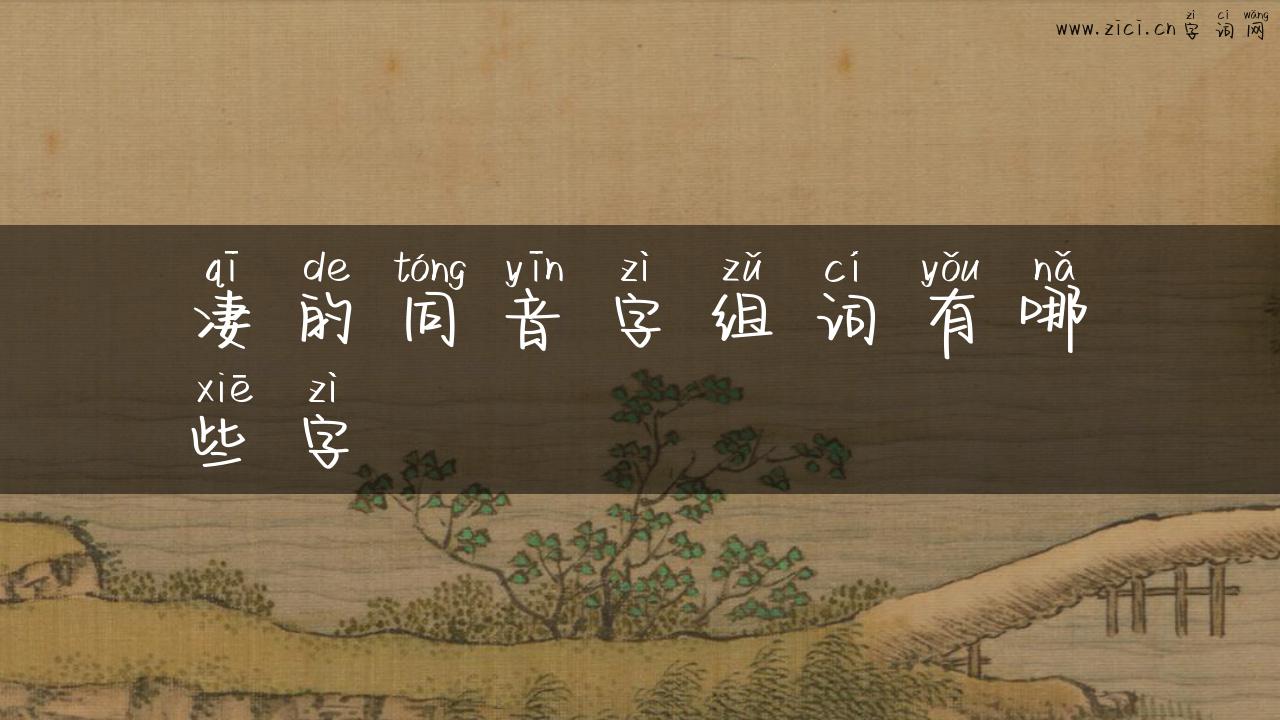 zì cí wǎng
www.zici.cn 字词网
qī de tóng yīn zì zǔ cí yǒu nǎ
凄的同音字组词有哪
xiē zì
些字